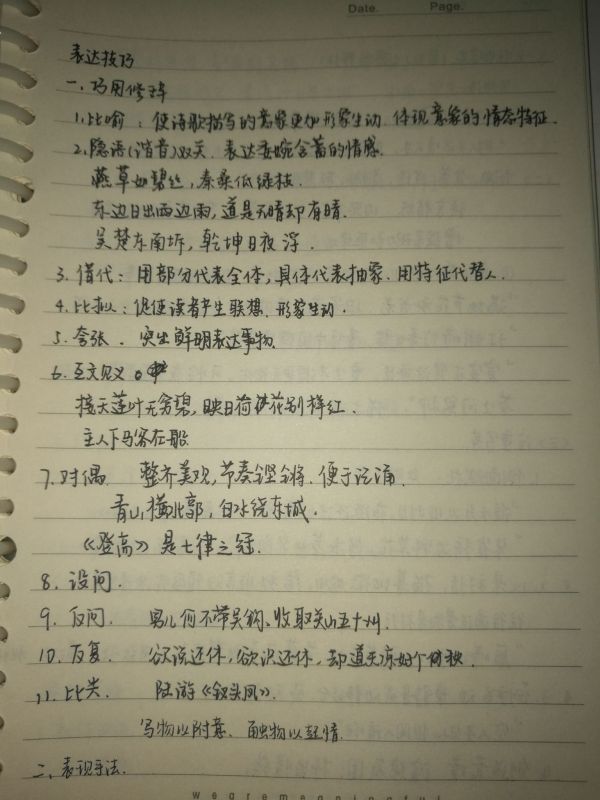 Date. Page.
表达技巧
一、巧用修辞
1.比喻：使诗歌描写的意象更加形象生动.体现意象的情态特征.
2.隐语(谐音)双关.表达委婉含蓄的情感.
燕草如碧丝,秦桑低绿枝.
东边日出西边雨,道是无晴却有晴.
吴楚东南坼,乾坤日夜浮.
3.借代：用部分代表全体,具体代表抽象.用特征代替人.
4.比拟：促使读者产生联想.形象生动.
5.夸张.突出鲜明表达事物.
6.互文见义
接天莲叶无穷碧,映日荷花别样红.
主人下马客在船
7.对偶 整齐美观,节奏铿锵.便于记诵.
青山横北郭,白水绕东城.
《登高》是七律之冠.
8.设问.
9.反问. 男儿何不带吴钩,收取关山五十州.
10.反复. 欲说还休,欲说还休,却道天凉好个秋.
11.比兴 陆游《钗头凤》.
写物以附意.触物以起情.
二、表现手法.
wegremegningful